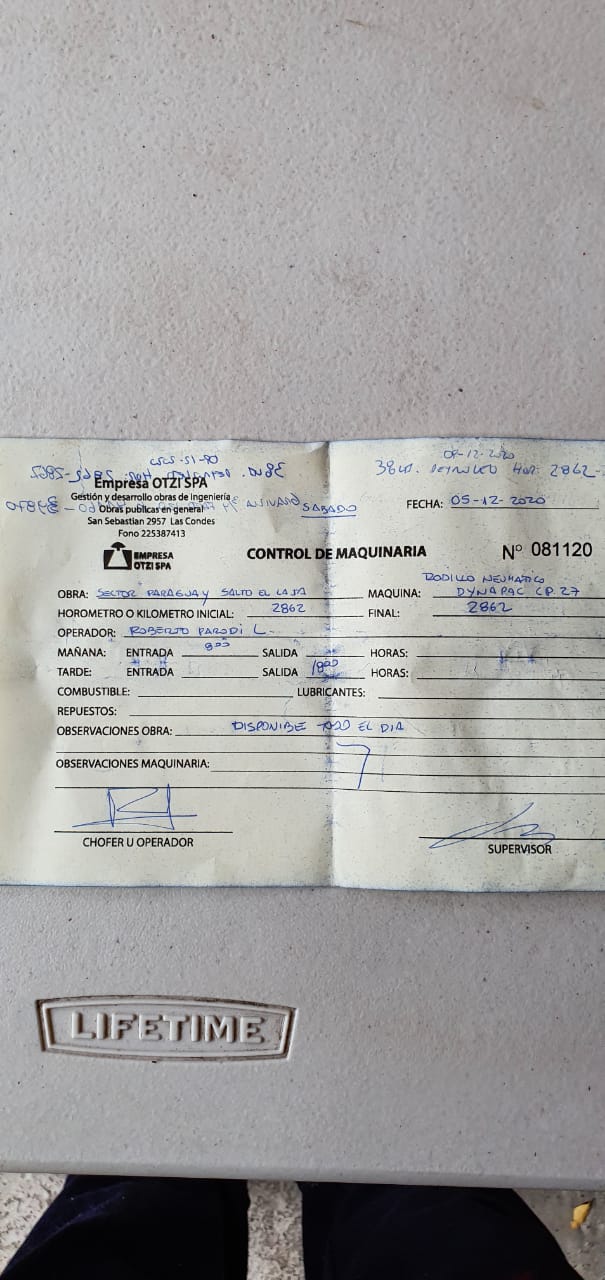 09-12-2020
38 LTS. PETROLEO HOR: 2862-
Empresa OTZI SPA
Gestión y desarrollo obras de Ingeniería
Obras publicas en general
San Sebastian 2957 Las Condes
Fono 225387413
SABADO
FECHA: 05-12-2020
EMPRESA
OTZI SPA
CONTROL DE MAQUINARIA
N° 081120
OBRA: SECTOR PARAGUAY SALTO EL LAJA
MAQUINA: RODILLO NEUMATICO
DYNAPAC CP.27
HOROMETRO O KILOMETRO INICIAL: 2862
FINAL: 2862
OPERADOR: ROBERTO PARODI L.
MAÑANA: ENTRADA 8:00 SALIDA HORAS:
TARDE: ENTRADA SALIDA 18:00 HORAS:
COMBUSTIBLE: LUBRICANTES:
REPUESTOS:
OBSERVACIONES OBRA: DISPONIBE TODO EL DIA
OBSERVACIONES MAQUINARIA:
CHOFER U OPERADOR
SUPERVISOR
LIFETIME